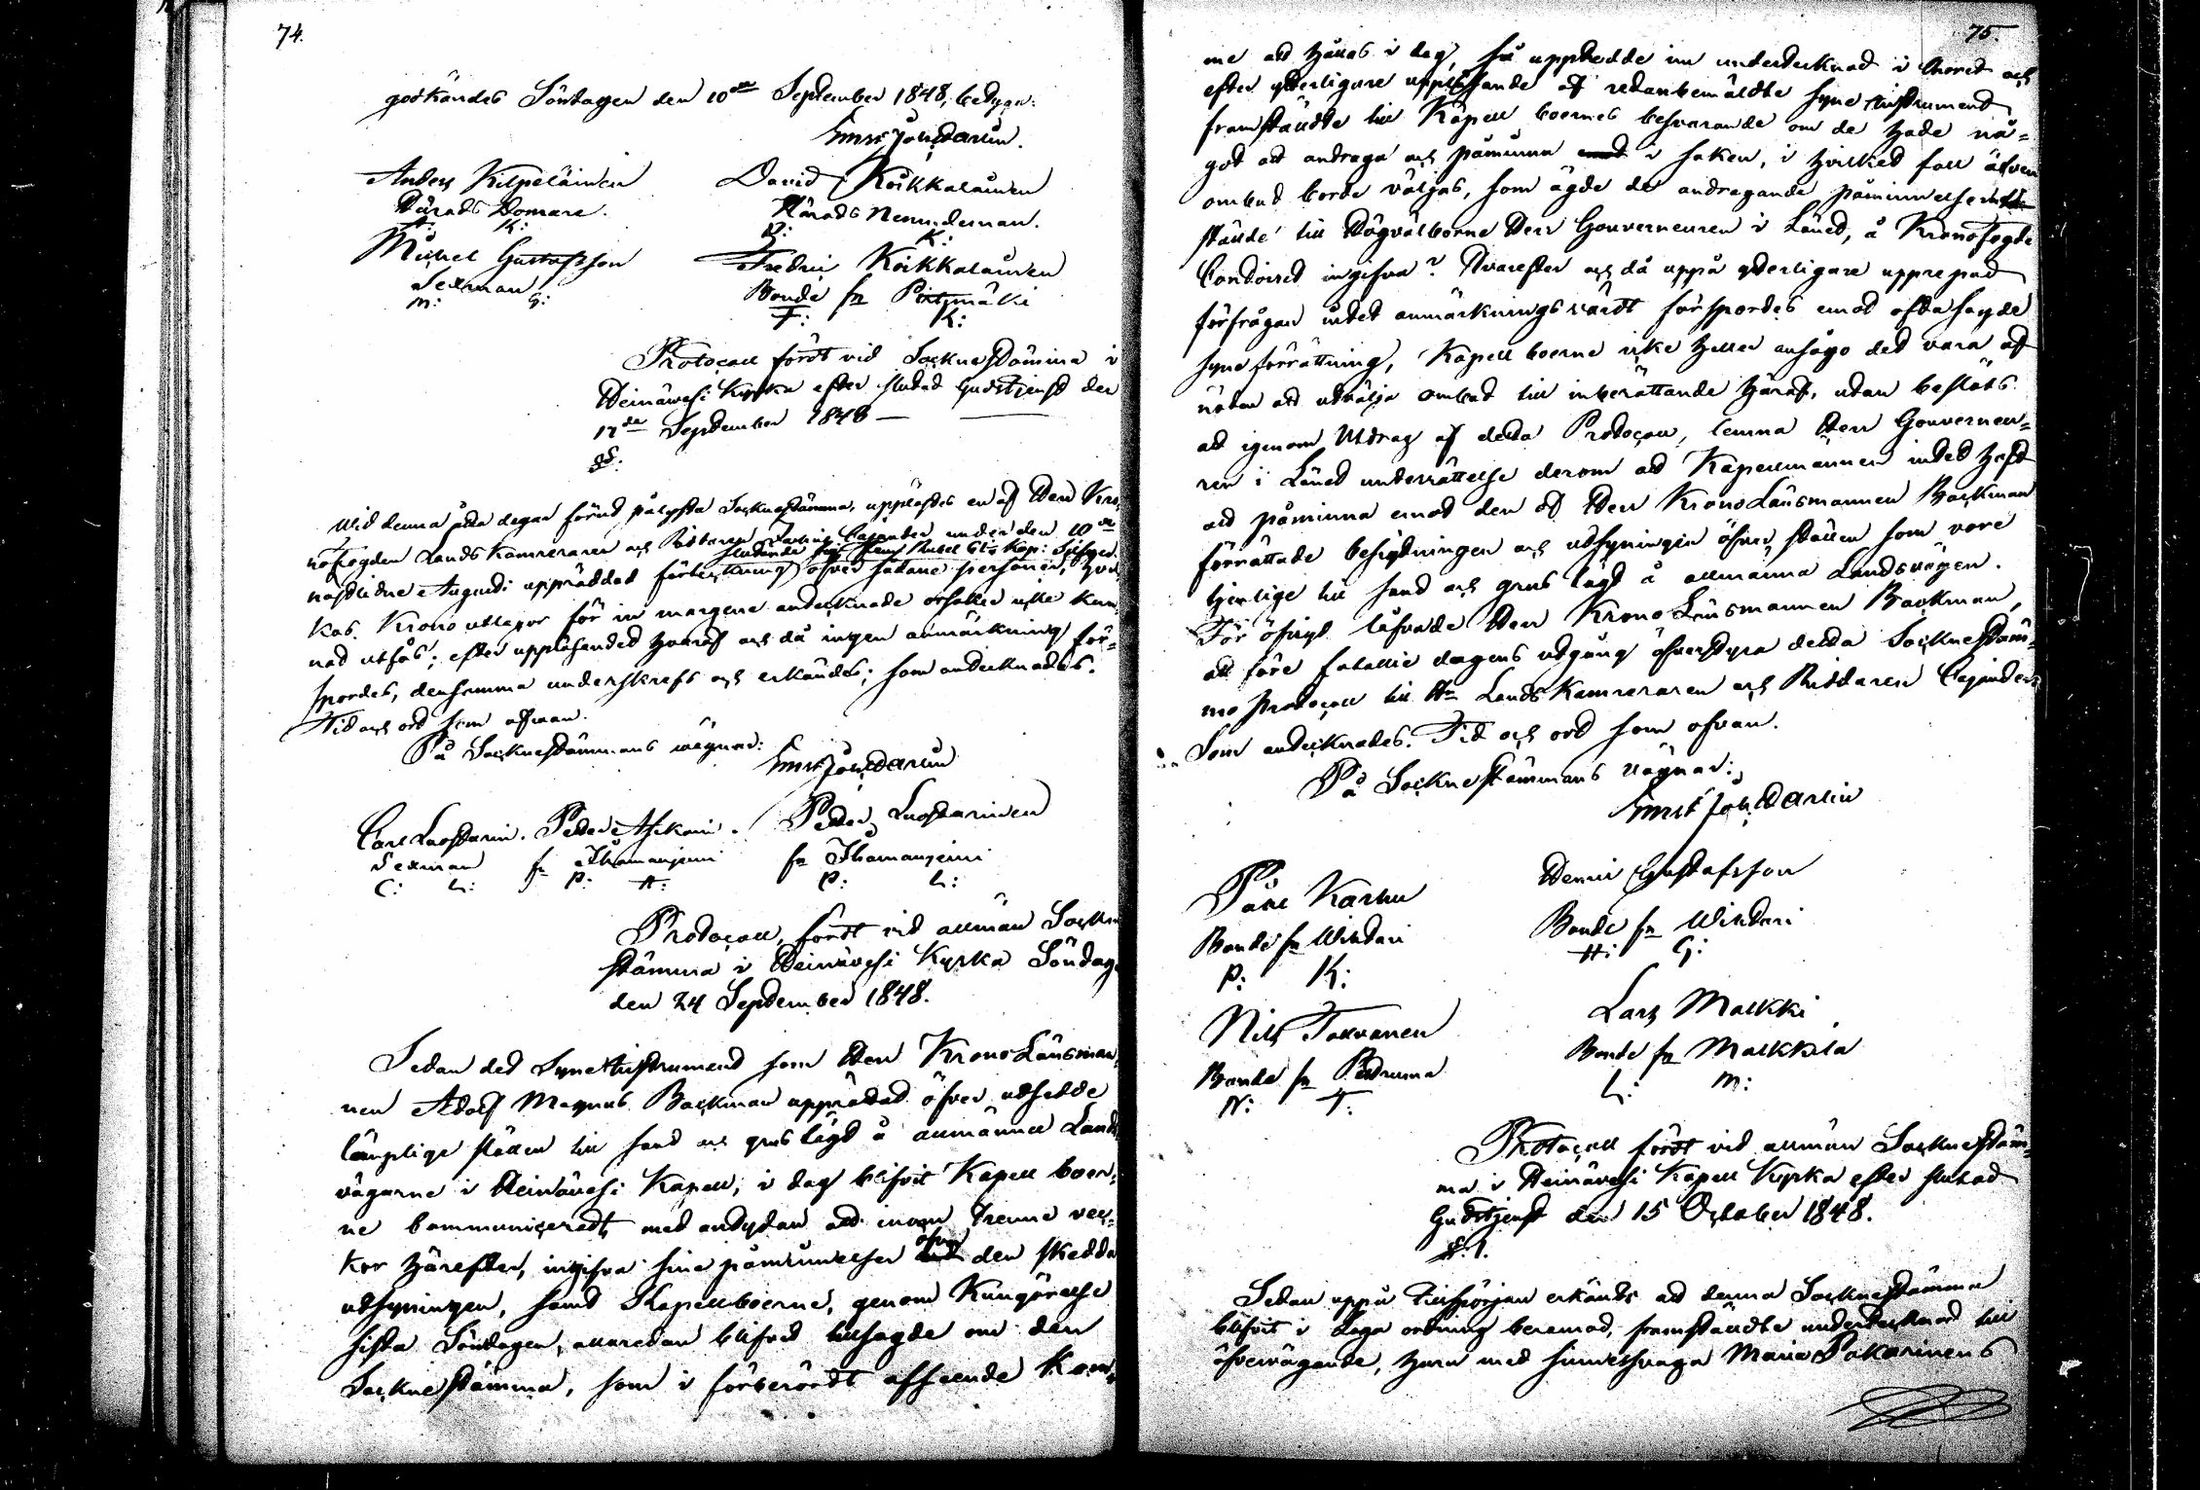 74.
godkändes Söndagen den 10de September 1848, betygar:
Ernst Joh: Darlin.
Anders Kilpeläinen David Koikkalainen
Härads Domare. Härads Nämndeman.
A: K: D: K:
Michel Gustafsson Fredric Koikkalainen
Sexman Bonde fr
M: G: F: K:
Protocoll fördt vid Socknestämma i
Heinävesi Kyrka efter slutad Gudstjenst den
17de September 1848 —
§1.
Wid denna åtta dagar förut pålysta Sockne­stämma, upplästes en af Herr Kro-
nofogden Lands Kamreraren och Riddaren Cajander under den 10de
nästledne Augusti upprättad förteckning öfver sådane personer, hvil-
kas Krono utlagor för in margine antecknade orsaker icke kun-
nat utfås; efter uppläsandet hvaraf och då ingen anmärkning för-
spordes, densamma underskrefs och erkändes; som antecknades.
Tid och ort som ofvan.
På Sockne­stämmans vägnar:
Ernst Joh: Darlin
Carl Luostarin. Petter Asikain. Petter Luostarinen
Sexman fr Ihamaniemi fr Ihamaniemi
C: L: P: A: P: L:
Protocoll, fördt vid allmän Sockne
stämma i Heinävesi Kyrka Söndagen
den 24 September 1848.
Sedan det Syne Instrument som Herr Krono Länsman-
nen Adolf Magnus Backman upprättat öfver utsedde
lämplige ställen till sand och grustägt å allmänna Lands
vägarne i Heinävesi Kapell, i dag blifvit Kapell boer-
ne communiceradt, med antydan att inom trenne vec-
kor härefter, ingifva sine påminnelser öfver den skedda
utsyningen, samt Kapellboerne, genom Kungörelse
sista Söndagen, allaredan blifvit tillsagde om den
Sockne­stämma, som i förberördt afseende kom-
75.
me att hållas i dag, så uppträdde nu undertecknad i Choret och
efter ytterligare uppläsande af redanbemäldte syne Instrument
framställdte till Kapell boernes besvarande om de hade nå-
got att andraga och påminna i saken, i hvilket fall äfven
ombud borde väljas, som ägde de andragande påminnelserne
till Högvälborne Herr Gouverneuren i Länet, å Kronofogde
Contoiret ingifva? Hvarefter och då uppå ytterligare upprepad
förfrågan intet anmärkningsvärdt försportes emot oftasagde
syneförrättning, Kapell boerne icke heller ansågo det vara af
nöden att utvälja ombud till inberättande häraf, utan beslöts
att igenom Utdrag af detta Protocoll, lemna Herr Gouverneu-
ren i Länet underrättelse derom att Kapellmännen intet haft
att påminna emot den af Herr Krono Länsmannen Backman
förrättade besigtningen och utsyningen öfver ställen som vore
tjenlige till sand och grus tägt å allmänna Landsvägen.
För öfrigt låfvade Herr Krono Länsmannen Backman,
att före fatalie dagens utgång öfverstyra detta Socknestäm-
mo Protocoll till Hr Lands Kamreraren och Riddaren Cajander.
Som antecknades. Tid och ort som ofvan.
På Socknestämmans vägnar:
Ernst Joh: Darlin
Påhl Karhu Henric Gustafsson
Bonde fr Wihtari Bonde fr Wihtari
P: K: H: G:
Nils Tolvanen Lars Malkki
Bonde fr Petruma Bonde fr Malkkila
N: T: L: M:
Protocoll fördt vid allmän Socknestäm-
ma i Heinävesi Kapell Kyrka efter slutad
Gudstjenst den 15 October 1848.
§.1.
Sedan uppå tillspörjan erkändts att denna Socknestämma
blifvit i laga ordning beramad, framställdte undertecknad till
öfvervägande, huru med sinnessvaga Maria Pakarinens